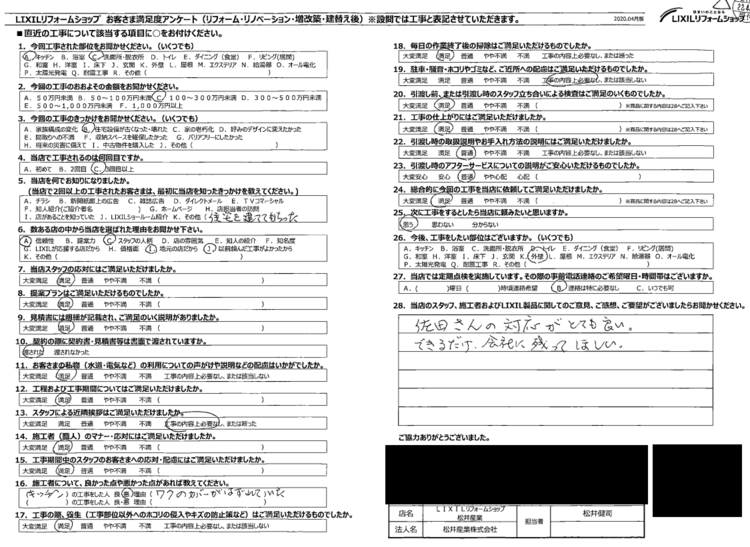 LIXILリフォームショップ お客さま満足度アンケート（リフォーム・リノベーション・増改築・建替え後）※設問では工事と表記させていただきます。
2020.04月版
LIXILリフォームショップ
■直近の工事について該当する項目に○をお付けください。
1. 今回工事された部位をお聞かせください。（いくつでも）
A. キッチン B. 浴室 C. 洗面所・脱衣所 D. トイレ E. ダイニング（食堂） F. リビング（居間）
G. 和室 H. 洋室 I. 床下 J. 玄関 K. 外壁 L. 屋根 M. エクステリア N. 給湯器 O. オール電化
P. 太陽光発電 Q. 耐震工事 R. その他（ ）
2. 今回の工事のおおよその金額をお聞かせください。
A. 50万円未満 B. 50～100万円未満 C. 100～300万円未満 D. 300～500万円未満
E. 500～1,000万円未満 F. 1,000万円以上
3. 今回の工事のきっかけをお聞かせください。（いくつでも）
A. 家族構成の変化 B. 住宅設備が古くなった・壊れた C. 家の老朽化 D. 好みのデザインに変えたかった
E. 間取りへの不満 F. 収納スペースを確保したかった G. バリアフリーにしたかった
H. 将来の災害に備えて I. 中古物件を購入した J. その他（ ）
4. 当店で工事されるのは何回目ですか。
A. 初めて B. 2回目 C. 3回目以上
5. 当店を何でお知りになりましたか。
（当店で2回以上の工事されたお客さまは、最初に当店を知ったきっかけを教えてください。）
A. チラシ B. 新聞紙面上の広告 C. 雑誌広告 D. ダイレクトメール E. TVコマーシャル
F. 知人紹介（ご紹介者名 ） G. ホームページ H. 店担当者の訪問
I. 店があることを知っていた J. LIXILショールーム紹介 K. その他（住宅を建ててもらった
6. 数ある店の中から当店を選ばれた理由をお聞かせ下さい。
A. 信頼性 B. 提案力 C. スタッフの人柄 D. 店の雰囲気 E. 知人の紹介 F. 知名度
G. LIXILが応援する店だから H. 価格面 I. 地元の店だから J. 以前頼んだ工事がよかったから
K. その他（ ）
7. 当店スタッフの応対にはご満足いただけましたか。
大変満足 満足 普通 やや不満 不満（ ）
8. 提案プランはご満足いただけるものでしたか。
大変満足 満足 普通 やや不満 不満（ ）
9. 見積書には明細が記載され、ご満足のいく説明がありましたか。
大変満足 満足 普通 やや不満 不満（ ）
10. 契約の際に契約書・見積書等は書面で渡されていますか。
渡された 渡されなかった
11. お客さまの私物（水道・電気など）の利用についての声がけや説明などの配慮はいかがでしたか。
大変満足 満足 普通 やや不満 不満 工事の内容上必要なし、または該当しない
12. 工程および工事期間についてはご満足いただけましたか。
大変満足 満足 普通 やや不満 不満（ ）
13. スタッフによる近隣挨拶はご満足いただけましたか。
大変満足 満足 普通 やや不満 不満 工事の内容上必要なし、または断った
14. 施工者（職人）のマナー・応対にはご満足いただけましたか。
大変満足 満足 普通 やや不満 不満（ ）
15. 工事期間中のスタッフのお客さまへの応対・配慮にはご満足いただけましたか。
大変満足 満足 普通 やや不満 不満（ ）
16. 施工者について、良かった点や悪かった点があれば教えてください。
（キッチン）の工事をした人 良・悪 理由（ワクのカバーがはずれていた
（ ）の工事をした人 良・悪 理由（ ）
17. 工事の際、養生（工事部位以外へのホコリの侵入やキズの防止策など）はご満足いただけるものでしたか。
大変満足 満足 普通 やや不満 不満 工事の内容上必要なし、または該当しない
18. 毎日の作業終了後の掃除はご満足いただけるものでしたか。
大変満足 満足 普通 やや不満 不満 工事の内容上必要なし、または断った
19. 駐車・騒音・ホコリやゴミなど、ご近所への配慮はご満足いただけましたか。
大変満足 満足 普通 やや不満 不満 工事の内容上必要なし、または該当しない
20. 引渡し前、または引渡し時のスタッフ立ち合いによる検査はご満足のいくものでしたか。
大変満足 満足 普通 やや不満 不満（ ）※商品に関する内容は28へご記入下さい
21. 工事の仕上がりにはご満足いただけましたか。
大変満足 満足 普通 やや不満 不満（ ）※商品に関する内容は28へご記入下さい
22. 引渡し時の取扱説明やお手入れ方法の説明にはご満足いただけましたか。
大変満足 満足 普通 やや不満 不満 工事の内容上必要なし、または該当しない
23. 引渡し時のアフターサービスについての説明がご安心いただけるものでしたか。
大変安心 安心 普通 やや心配 心配（ ）
24. 総合的に今回の工事を当店に依頼してご満足いただけましたか。
大変満足 満足 普通 やや不満 不満（ ）※商品に関する内容は28へご記入下さい
25. 次に工事をするとしたら当店に頼みたいと思いますか。
思う 思わない 分からない
26. 今後、工事をしたい部位はございますか。（いくつでも）
A. キッチン B. 浴室 C. 洗面所・脱衣所 D. トイレ E. ダイニング（食堂） F. リビング（居間）
G. 和室 H. 洋室 I. 床下 J. 玄関 K. 外壁 L. 屋根 M. エクステリア N. 給湯器 O. オール電化
P. 太陽光発電 Q. 耐震工事 R. その他（ ）
27. 当店では定期点検を実施しています。その際の事前電話連絡のご希望曜日・時間等はございますか。
A.（ ）曜日（ ）時頃連絡希望 B. 連絡は特に必要なし C. いつでも可
28. 当店のスタッフ、施工者およびLIXIL製品に関してのご意見、ご感想、ご要望がございましたらお聞かせください。
佐田さんの対応がとても良い。
できるだけ、会社に残ってほしい。
ご協力ありがとうございました。
店名 LIXILリフォームショップ 松井産業 担当者 松井健司
法人名 松井産業株式会社